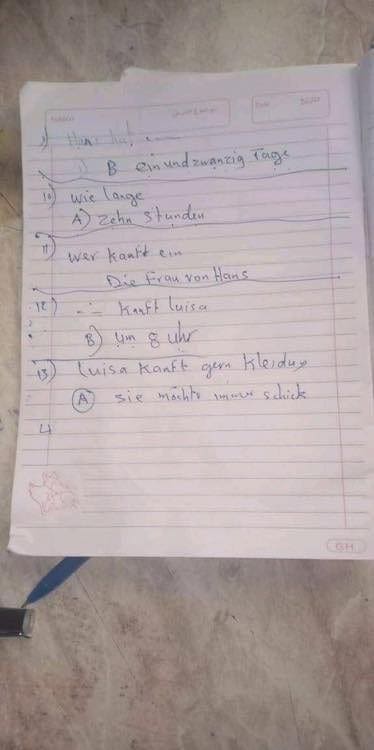 9) Hans hat ......
B einundzwanzig Tage
10) wie lange
A) zehn stunden
11) wer kauft ein
Die Frau von Hans
12) kauft luisa
B) um 8 uhr
13) Luisa kauft gern kleidung
A sie möchte immer schick
GH